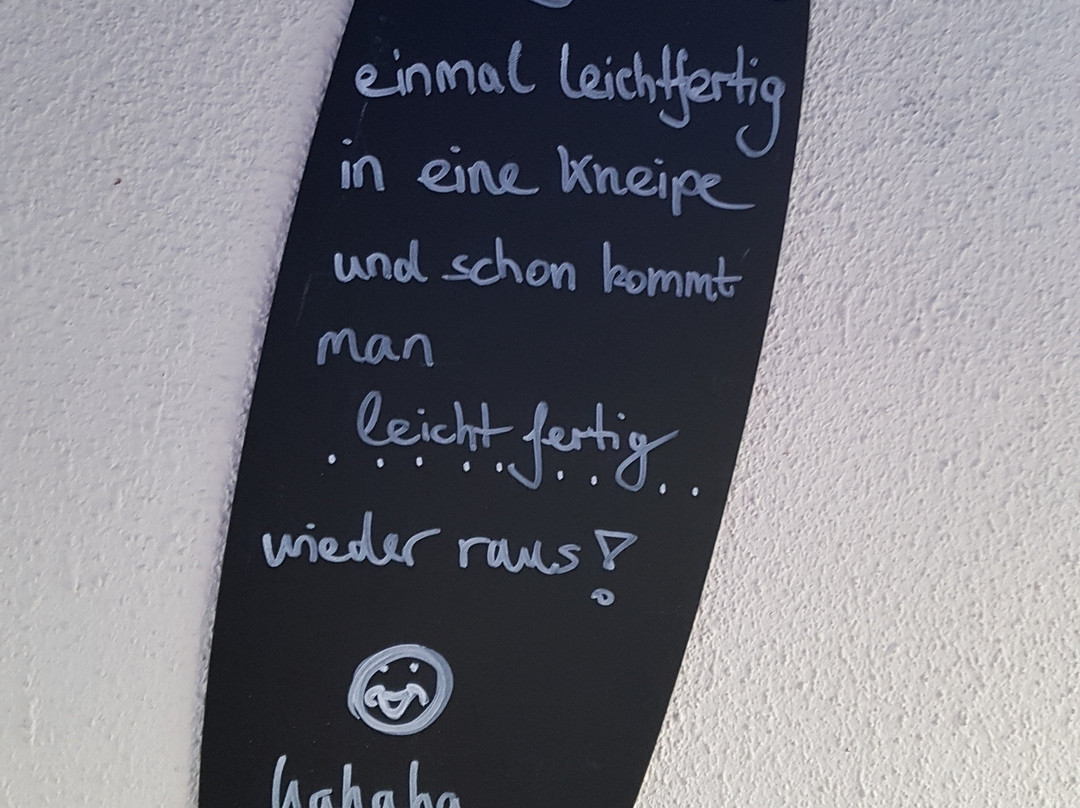 einmal leichtfertig
in eine Kneipe
und schon kommt
man
leicht fertig
wieder raus!
hahaha